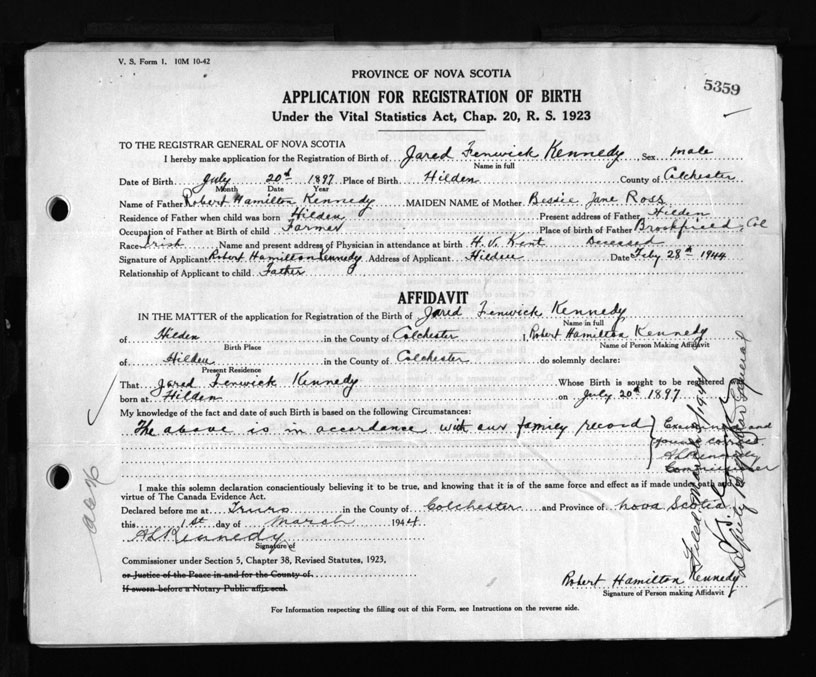 V. S. Form 1. 10M 10-42
5359
PROVINCE OF NOVA SCOTIA
APPLICATION FOR REGISTRATION OF BIRTH
Under the Vital Statistics Act, Chap. 20, R. S. 1923
TO THE REGISTRAR GENERAL OF NOVA SCOTIA
I hereby make application for the Registration of Birth of Jared Fenwick Kennedy Sex male
Name in full
Date of Birth July 20th 1897 Place of Birth Hilden County of Colchester
Month Date Year
Name of Father Robert Hamilton Kennedy MAIDEN NAME of Mother Bessie Jane Ross
Residence of Father when child was born Hilden Present address of Father Hilden
Occupation of Father at Birth of child Farmer Place of birth of Father Brookfield, Col
Race Irish Name and present address of Physician in attendance at birth H. V. Kent Deceased
Signature of Applicant Robert Hamilton Kennedy Address of Applicant Hilden Date Feby 28th 1944
Relationship of Applicant to child Father
AFFIDAVIT
IN THE MATTER of the application for Registration of the Birth of Jared Fenwick Kennedy
Name in full
of Hilden in the County of Colchester I, Robert Hamilton Kennedy
Birth Place Name of Person Making Affidavit
of Hilden in the County of Colchester do solemnly declare:
Present Residence
That Jared Fenwick Kennedy Whose Birth is sought to be registered
born at Hilden on July 20th 1897
My knowledge of the fact and date of such Birth is based on the following Circumstances:
The above is in accordance with our family record
Examined and
found correct
A L Kennedy
Commissioner
I make this solemn declaration conscientiously believing it to be true, and knowing that it is of the same force and effect as if made under oath and
virtue of The Canada Evidence Act.
Declared before me at Truro in the County of Colchester and Province of Nova Scotia
this 1st day of March 1944
A L Kennedy
Signature of
Commissioner under Section 5, Chapter 38, Revised Statutes, 1923,
or Justice of the Peace in and for the County of
If sworn before a Notary Public affix seal.
Robert Hamilton Kennedy
Signature of Person making Affidavit
For Information respecting the filling out of this Form, see Instructions on the reverse side.
Filed March 1944
Deputy Registrar General